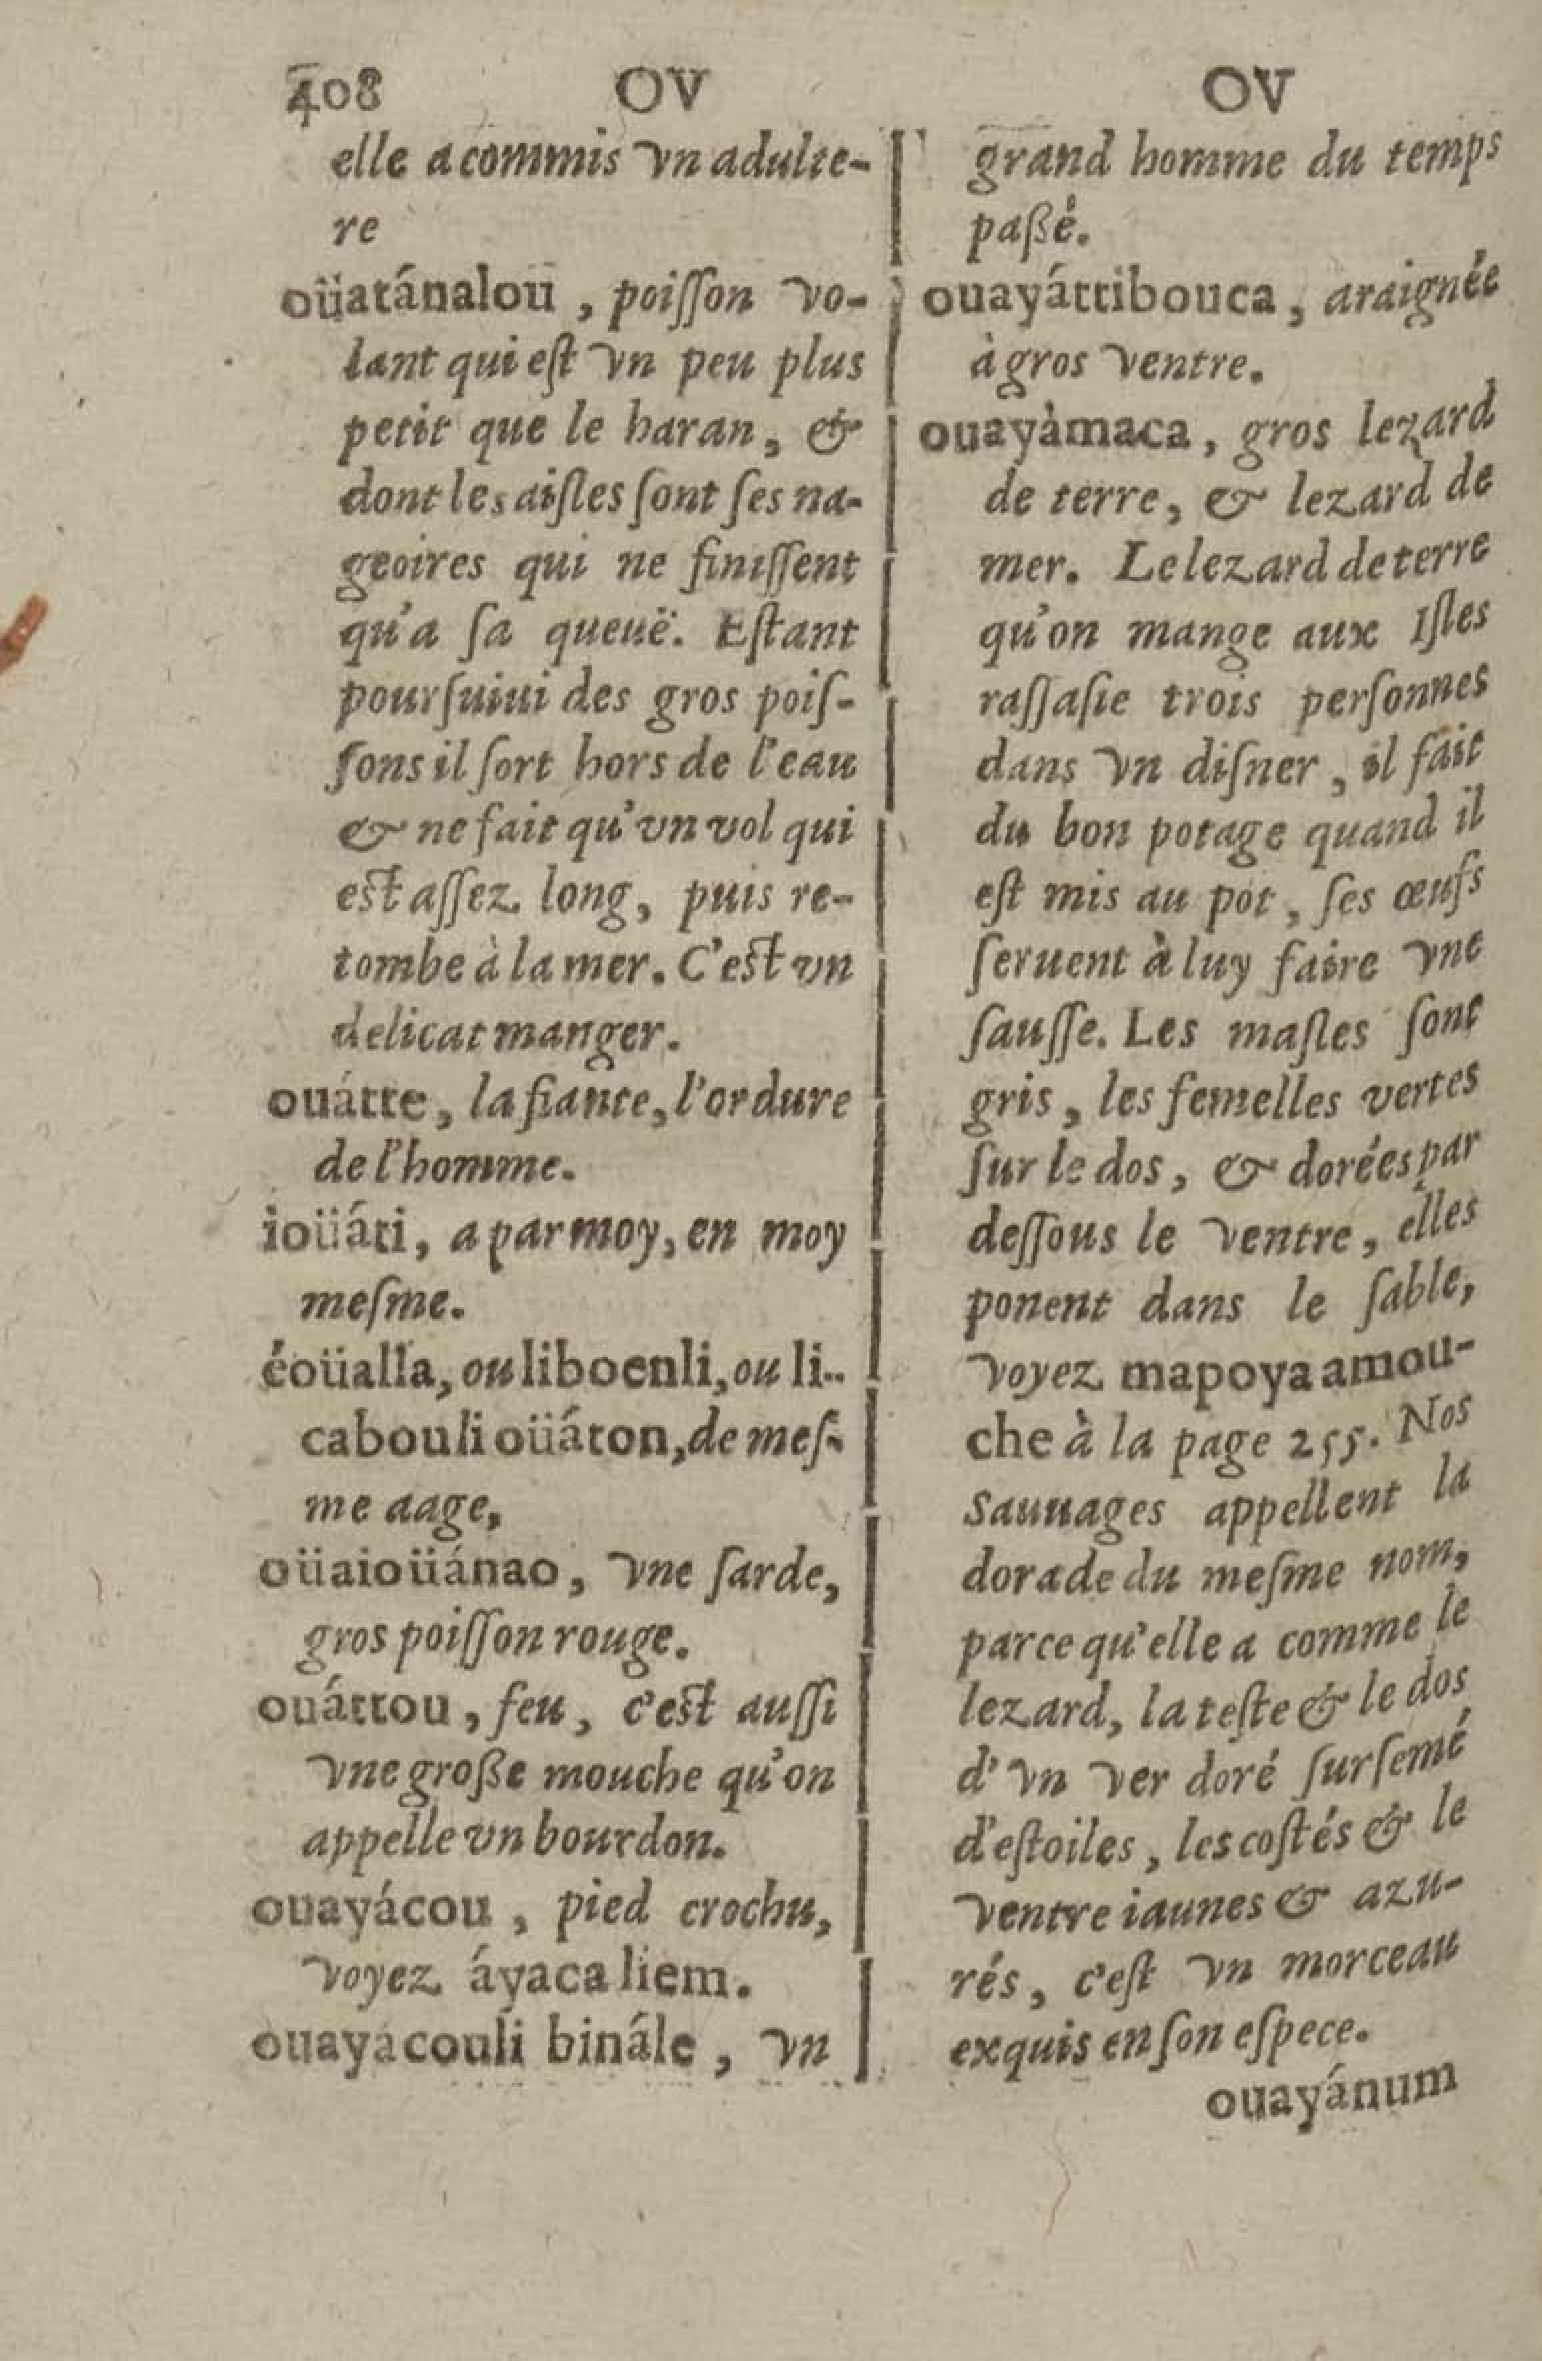 408 OV OV
elle a commis vn adulte-
re
oüatánalou, poiſſon vo-
lant qui eſt vn peu plus
petit que le haran, &
dont les aiſles ſont ſes na-
geoires qui ne finiſſent
qu'a ſa queuë. Eſtant
pourſuiui des gros poiſ-
ſons il ſort hors de l'eau
& ne fait qu'vn vol qui
eſt aſſez long, puis re-
tombe à la mer. C'eſt vn
delicat manger.
ouátte, la fiante, l'ordure
de l'homme.
ioüáti, a par moy, en moy
meſme.
éoüalla, ou liboenli, ou li-
cabouli oüáton, de meſ-
me aage,
oüaioüánao, vne ſarde,
gros poiſſon rouge.
ouáttou, feu, c'eſt auſſi
vne große mouche qu'on
appelle vn bourdon.
ouayácou, pied crochu,
voyez áyaca liem.
ouayacouli binále, vn
grand homme du temps
paßé.
ouayáttibouca, araignée
à gros ventre.
ouayàmaca, gros lezard
de terre, & lezard de
mer. Le lezard de terre
qu'on mange aux Iſles
raſſaſie trois perſonnes
dans vn diſner, il fait
du bon potage quand il
eſt mis au pot, ſes œufs
ſeruent à luy faire vne
ſauſſe. Les maſles ſont
gris, les femelles vertes
ſur le dos, & dorées par
deſſous le ventre, elles
ponent dans le ſable,
voyez mapoya amou-
che à la page 255. Nos
Sauuages appellent la
dorade du meſme nom,
parce qu'elle a comme le
lezard, la teſte & le dos
d'vn ver doré ſurſemé
d'eſtoiles, les coſtés & le
ventre iaunes & azu-
rés, c'eſt vn morceau
exquis en ſon eſpece.
ouayánum